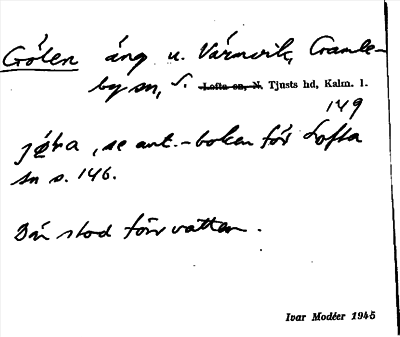 Gölen äng u. Värmvik, Gamle-
by sn, S. Lofta sn, N. Tjusts hd, Kalm. l.
149
jfra, se ant.-boken för Lofta
sn s. 146.
Där stod förr vatten.
Ivar Modéer 1945